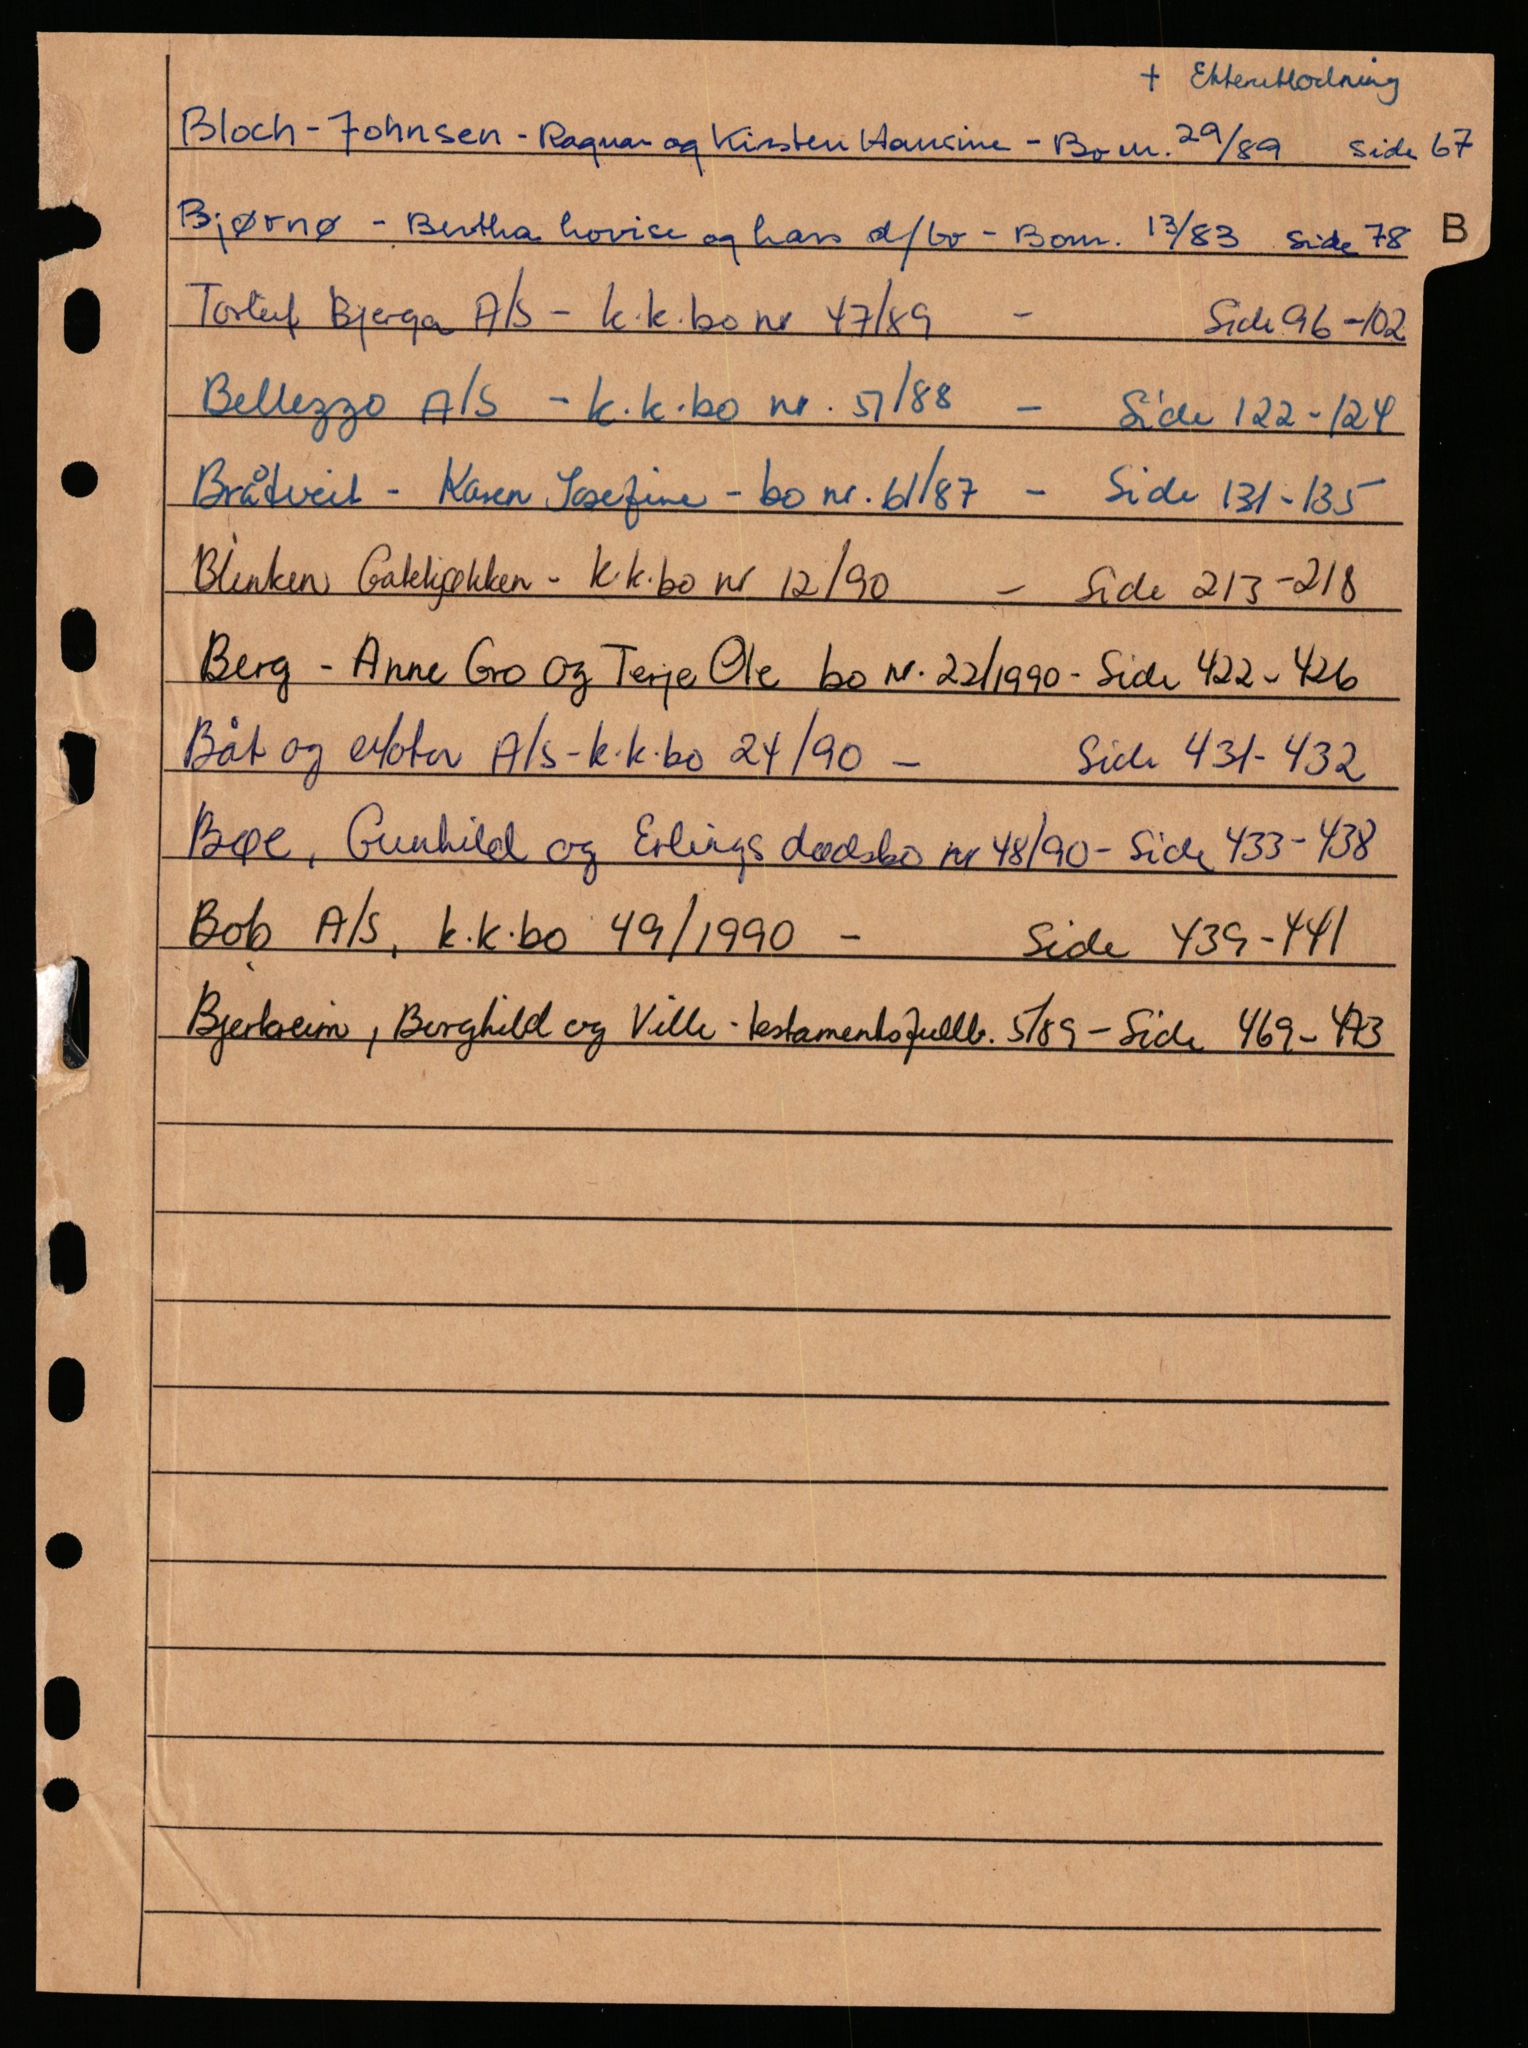 + Etterutlodning
Bloch-Johnsen - Ragnar og Kirsten Hansine - Bo nr. 29/89 side 67
Bjørnø - Bertha Lovise og Lars d/bo - Bo nr. 13/83 side 78
B
Torleif Bjerga A/S - k.k.bo nr 47/89 - Side 96-102
Bellezzo A/S - k.k.bo nr. 51/88 - Side 122-124
Bråtveit - Karen Josefine - bo nr. 61/87 - Side 131-135
Blinken Gatekjøkken - k.k.bo nr 12/90 - Side 213-218
Berg - Anne Gro og Terje Ole bo nr. 22/1990 - Side 422-426
Båt og Motor A/S - k.k.bo 24/90 - Side 431-432
Bøe, Gunhild og Erlings dødsbo nr 48/90 - Side 433-438
Bob A/S, k.k.bo 49/1990 - Side 439-441
Bjerkreim, Borghild og Ville - testamentsfullb. 5/89 - Side 469-473